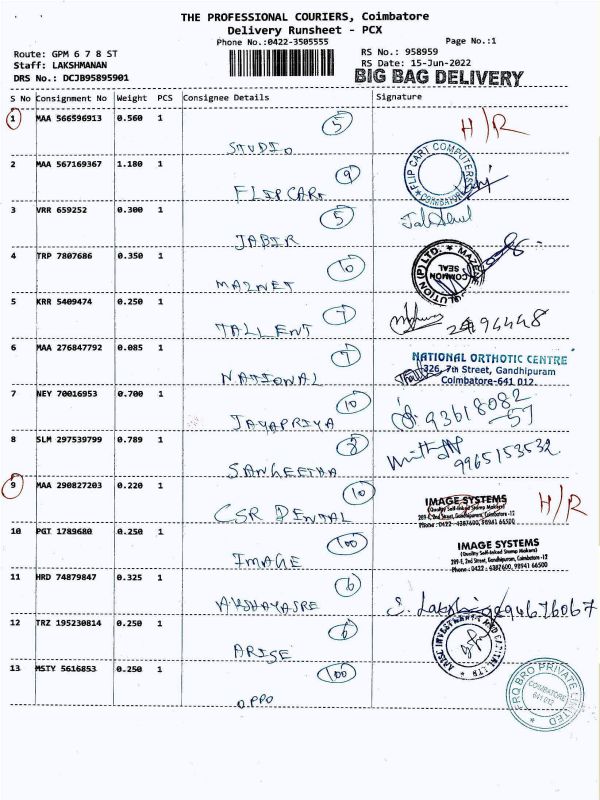 THE PROFESSIONAL COURIERS, Coimbatore
Delivery Runsheet - PCX
Phone No.:0422-3505555 Page No.:1
Route: GPM 6 7 8 ST RS No.: 958959
Staff: LAKSHMANAN RS Date: 15-Jun-2022
DRS No.: DCJB95895901 BIG BAG DELIVERY
S No Consignment No Weight PCS Consignee Details Signature
1 MAA 566596913 0.560 1 5 H/R
STUDIO
2 MAA 567169367 1.180 1 9 FLIP CART COMPUTERS COIMBATORE
FLIPCART
3 VRR 659252 0.300 1 5
JABIR
4 TRP 7807686 0.350 1 10 COMMON SEAL
MAZNET
5 KRR 5409474 0.250 1 7
TALLENT
6 MAA 276847792 0.085 1 7 NATIONAL ORTHOTIC CENTRE
326, 7th Street, Gandhipuram
NATIONAL Coimbatore-641 012.
7 NEY 70016953 0.700 1 10 93618082
57
JAYAPRIYA
8 SLM 297539799 0.789 1 8
SANGEETHA 9965153532
9 MAA 290827203 0.220 1 10 IMAGE SYSTEMS H/R
(Quality Self-Inked Stamp Makers)
CSR DENTAL 209-E, 2nd Street, Gandhipuram, Coimbatore -12
Phone : 0422 - 4387600, 98941 66500
10 PGT 1789680 0.250 1 100 IMAGE SYSTEMS
(Quality Self-Inked Stamp Makers)
IMAGE 209-E, 2nd Street, Gandhipuram, Coimbatore -12
Phone : 0422 - 4387600, 98941 66500
11 HRD 74879847 0.325 1 6
AKSHAYASRE
12 TRZ 195230814 0.250 1 6
ARISE
13 MSTY 5616853 0.250 1 100 FRQ BRO PRIVATE LIMITED COIMBATORE 641 012
OPPO